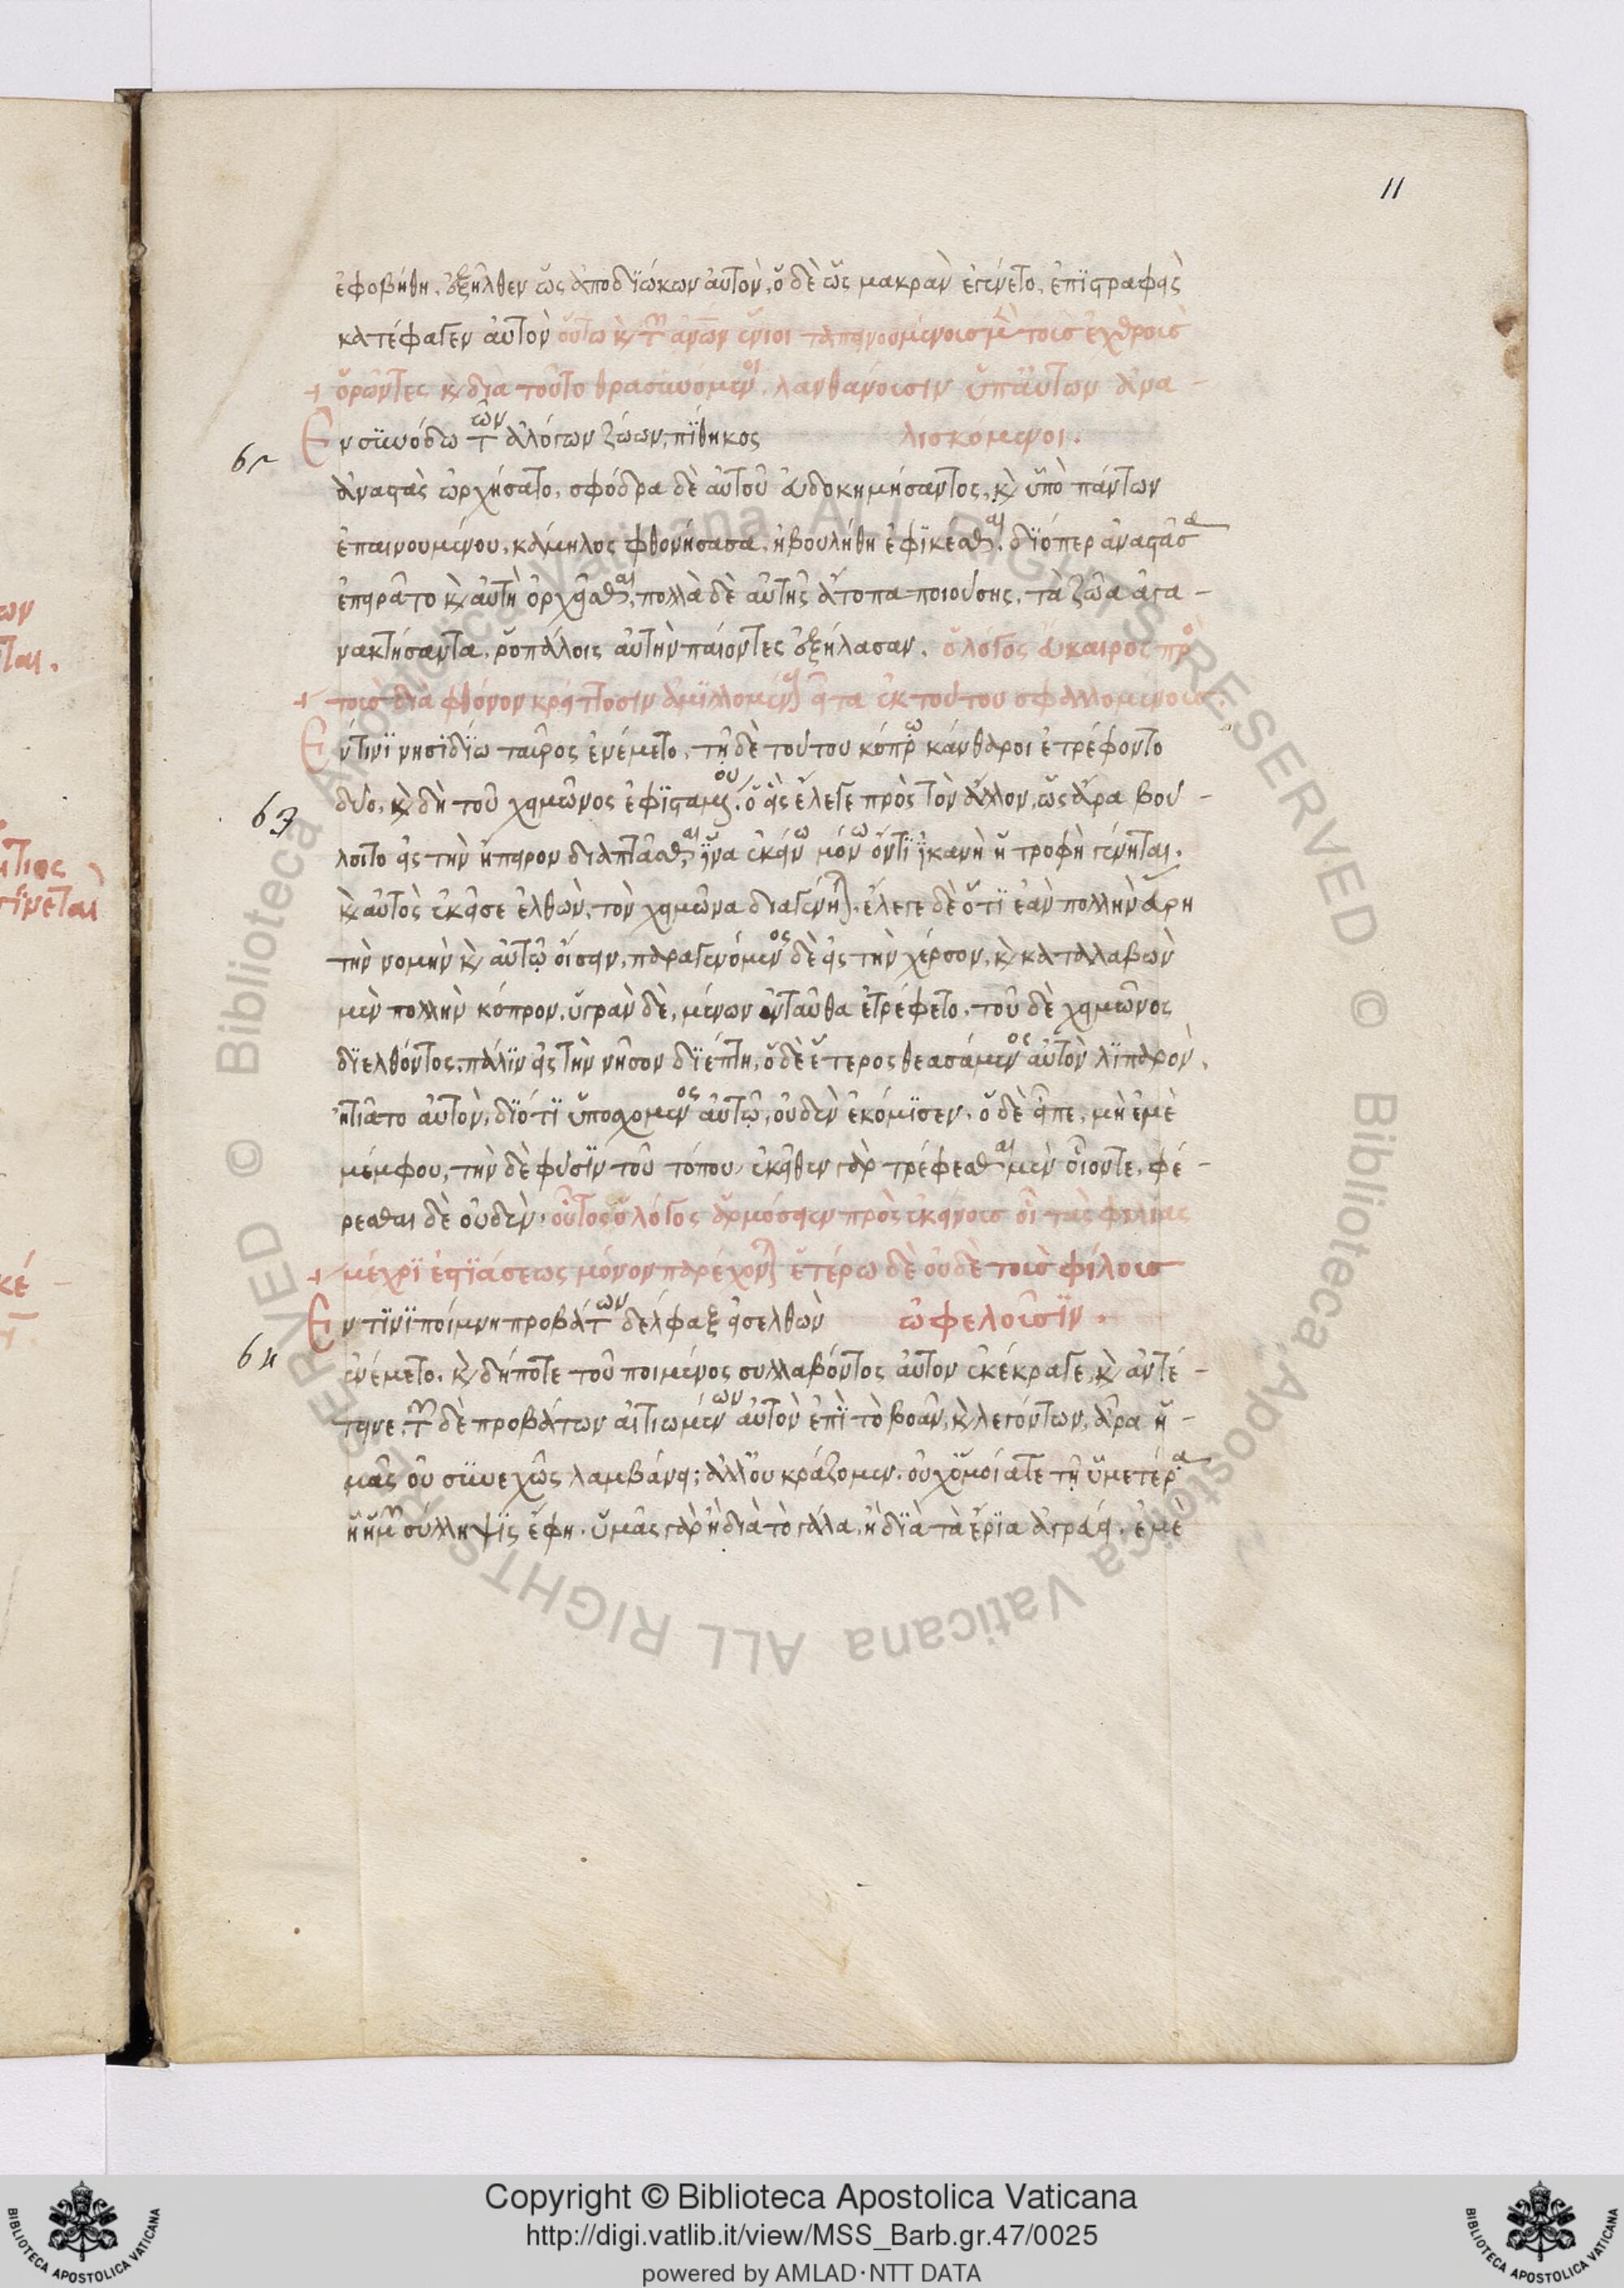 11
ἐφοβήθη. ἐξῆλθεν ὡς ἀποδϊώκων αὐτὸν, ὁ δὲ ὡς μακρὰν ἐγένετο, ἐπϊστραφεὶς
κατέφαγεν αὐτὸν οὕτω κ(αὶ) τ(ῶν) ἀνων ἔνιοι ταπεινουμένοις μ(ὲν) τοῖς ἐχθροῖς
+ ὁρῶντες κ(αὶ) διὰ τοῦτο θρασυνόμενοι. λανθάνουσιν ὑπ' αὐτῶν ἀνα -
Εν συνόδω τῶν ἀλόγων ζώων, πϊθηκος λισκόμενοι.
ἀναστὰς ὠρχήσατο, σφόδρα δὲ αὐτοῦ εὐδοκημήσαντος, κ(αὶ) ὑπὸ πάντων
ἐπαινουμένου, κάμηλος φθονήσασα. ἠβουλήθη ἐφϊκέσθαι. δϊόπερ ἀναστᾶσα
ἐπειρᾶτο κ(αὶ) αὐτὴ ὀρχεῖσθαι, πολλὰ δὲ αὐτῆς ἄτοπα ποιούσης, τὰ ζῶα ἀγα -
νακτήσαντα. ῥοπάλοις αὐτὴν παίοντες ἐξήλασαν. ὁ λόγος εὔκαιρος πρὸ
+ τοὺς διὰ φθόνον κρείττοσιν ἁμϊλλομένους εἶτα ἐκ τούτου σφαλλομένους.
Εν τινϊ νησϊδϊω ταῦρος ἐνέμετο. τῇ δὲ τούτου κόπρω κάνθαροι ἐτρέφοντο
63 δύο, κ(αὶ) δὴ τοῦ χειμῶνος ἐφϊσταμένου, ὁ εἷς ἔλεγε πρὸς τὸν ἄλλον, ὡς ἄρα βού -
λοιτο εἰς τὴν ἤπειρον διαπτᾶσθαι, ἵνα ἐκείνω μόνω ὄντϊ ἱκανὴ ἡ τροφὴ γένηται.
κ(αὶ) αὐτὸς ἐκεῖσε ἐλθὼν, τὸν χειμῶνα διαγένηται. ἔλεγε δὲ ὅτϊ ἐὰν πολλὴν εὕρη
τὴν νομὴν κ(αὶ) αὐτῷ οἴσειν, παραγενόμενος δὲ εἰς τὴν χέρσον, κ(αὶ) καταλαβὼν
μὲν πολλὴν κόπρον, ὑγρὰν δὲ, μένων ἐνταῦθα ἐτρέφετο. τοῦ δὲ χειμῶνος
δϊελθόντος, πάλϊν εἰς τὴν νῆσον δϊέπτη, ὁ δὲ ἕτερος θεασάμενος αὐτὸν λϊπαρὸν,
ἠτιᾶτο αὐτὸν, δϊότϊ ὑποσχομενος αὐτῷ, οὐδὲν ἐκόμϊσεν. ὁ δὲ εἶπε, μὴ ἐμὲ
μέμφου, τὴν δὲ φύσϊν τοῦ τόπου, ἐκεῖθεν γὰρ τρέφεσθαι μὲν οἷον τε, φέ -
ρεσθαι δὲ οὐδὲν. οὗτος ὁ λόγος ἁρμόσειεν πρὸς ἐκείνους οἳ τὰς φιλίας
+ μέχρϊ ἑστϊάσεως μόνον παρέχονται ἑτέρω δὲ οὐδὲ τοὺς φίλους
Εν τϊνϊ ποίμνη προβάτων δέλφαξ εἰσελθὼν ὠφελοῦσϊν.
64 ἐνέμετο. κ(αὶ) δήποτε τοῦ ποιμένος συλλαβόντος αὐτον ἐκέκραγε, κ(αὶ) ἀντέ -
τεινε. τ(ῶν) δὲ προβάτων αἰτιωμένων αὐτὸν ἐπϊ τὸ βοᾶν, κ(αὶ) λεγόντων, ἆρα ἡ -
μᾶς οὐ συνεχῶς λαμβάνει; ἀλλ' οὐ κράζομεν. οὐχ ὁμοία τε τῇ ὑμετέρα
ἡ ἡμ(ῶν) σύλληψϊς ἔφη. ὑμᾶς γὰρ ἢ διὰ τὸ γάλα. ἢ δϊὰ τὰ ἔρϊα ἀγράει. ἐμὲ
Copyright © Biblioteca Apostolica Vaticana
http://digi.vatlib.it/view/MSS_Barb.gr.47/0025
powered by AMLAD·NTT DATA